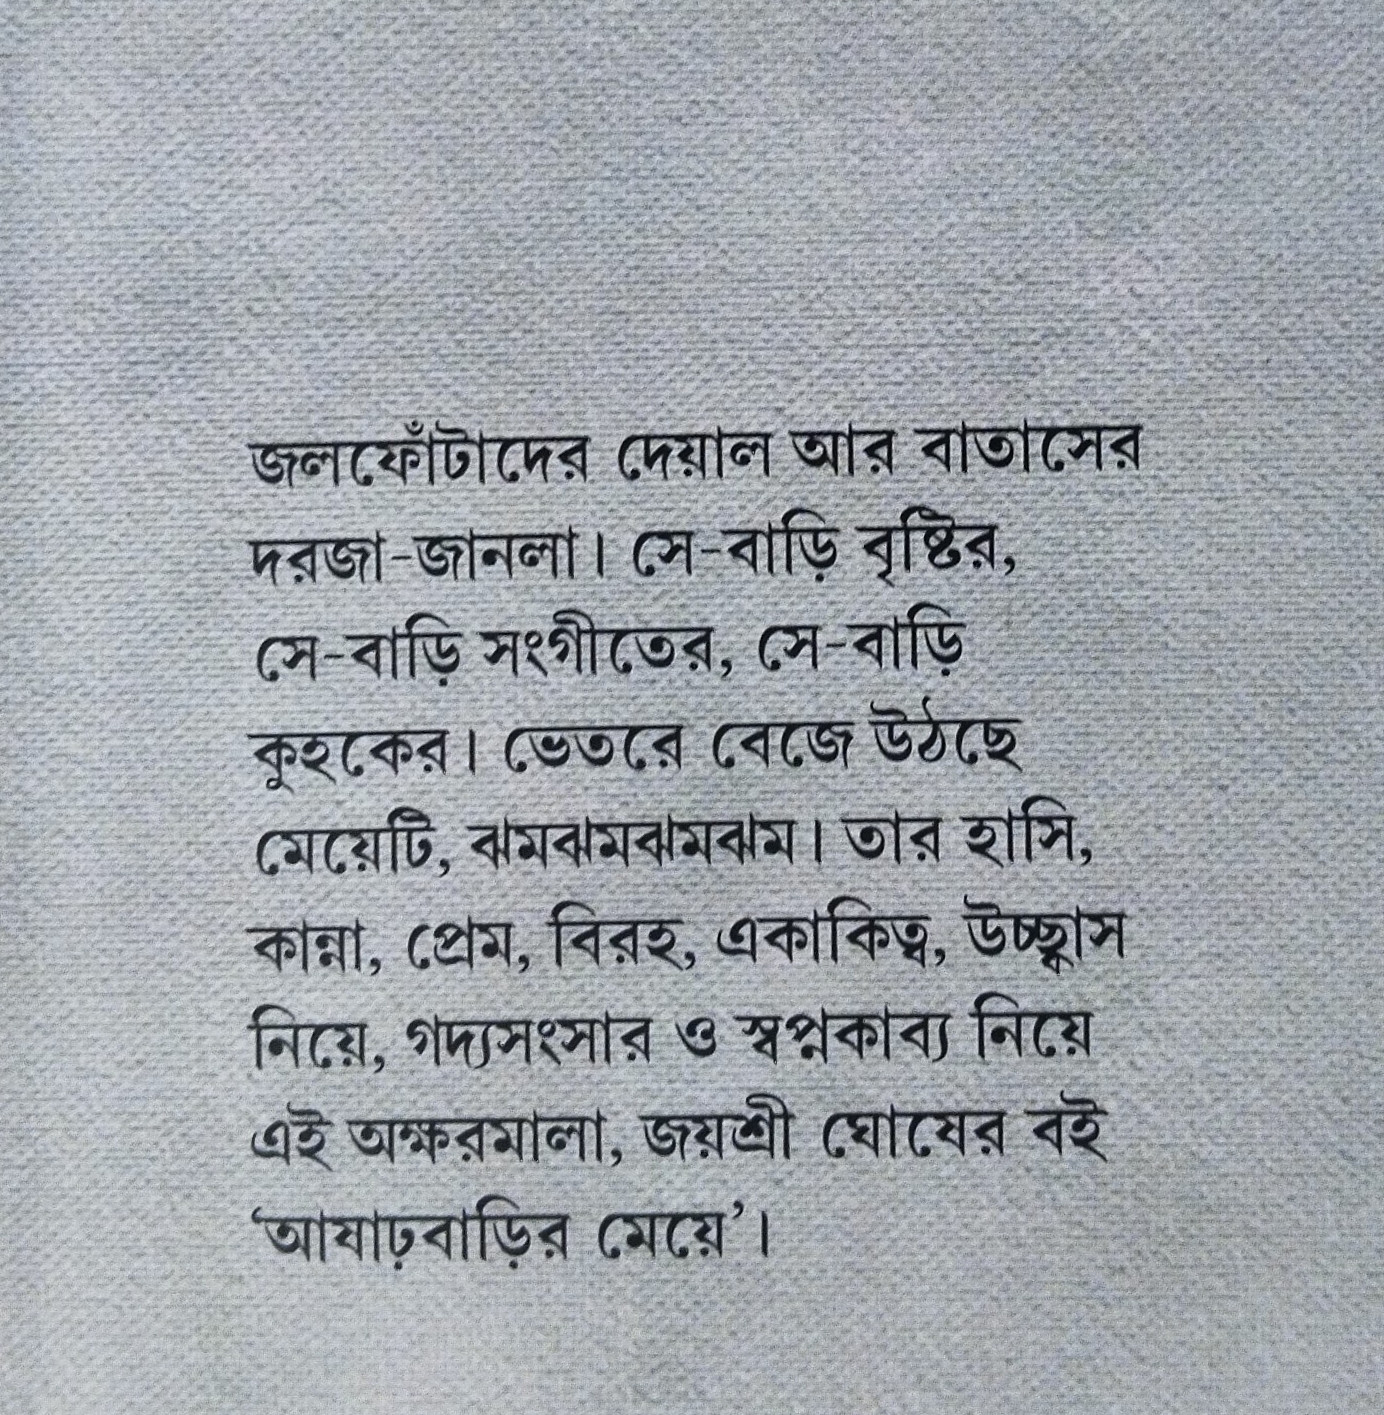 জলফোঁটাদের দেয়াল আর বাতাসের
দরজা-জানলা। সে-বাড়ি বৃষ্টির,
সে-বাড়ি সংগীতের, সে-বাড়ি
কুহকের। ভেতরে বেজে উঠছে
মেয়েটি, ঝমঝমঝমঝম। তার হাসি,
কান্না, প্রেম, বিরহ, একাকিত্ব, উচ্ছ্বাস
নিয়ে, গদ্যসংসার ও স্বপ্নকাব্য নিয়ে
এই অক্ষরমালা, জয়শ্রী ঘোষের বই
‘আষাঢ়বাড়ির মেয়ে’।